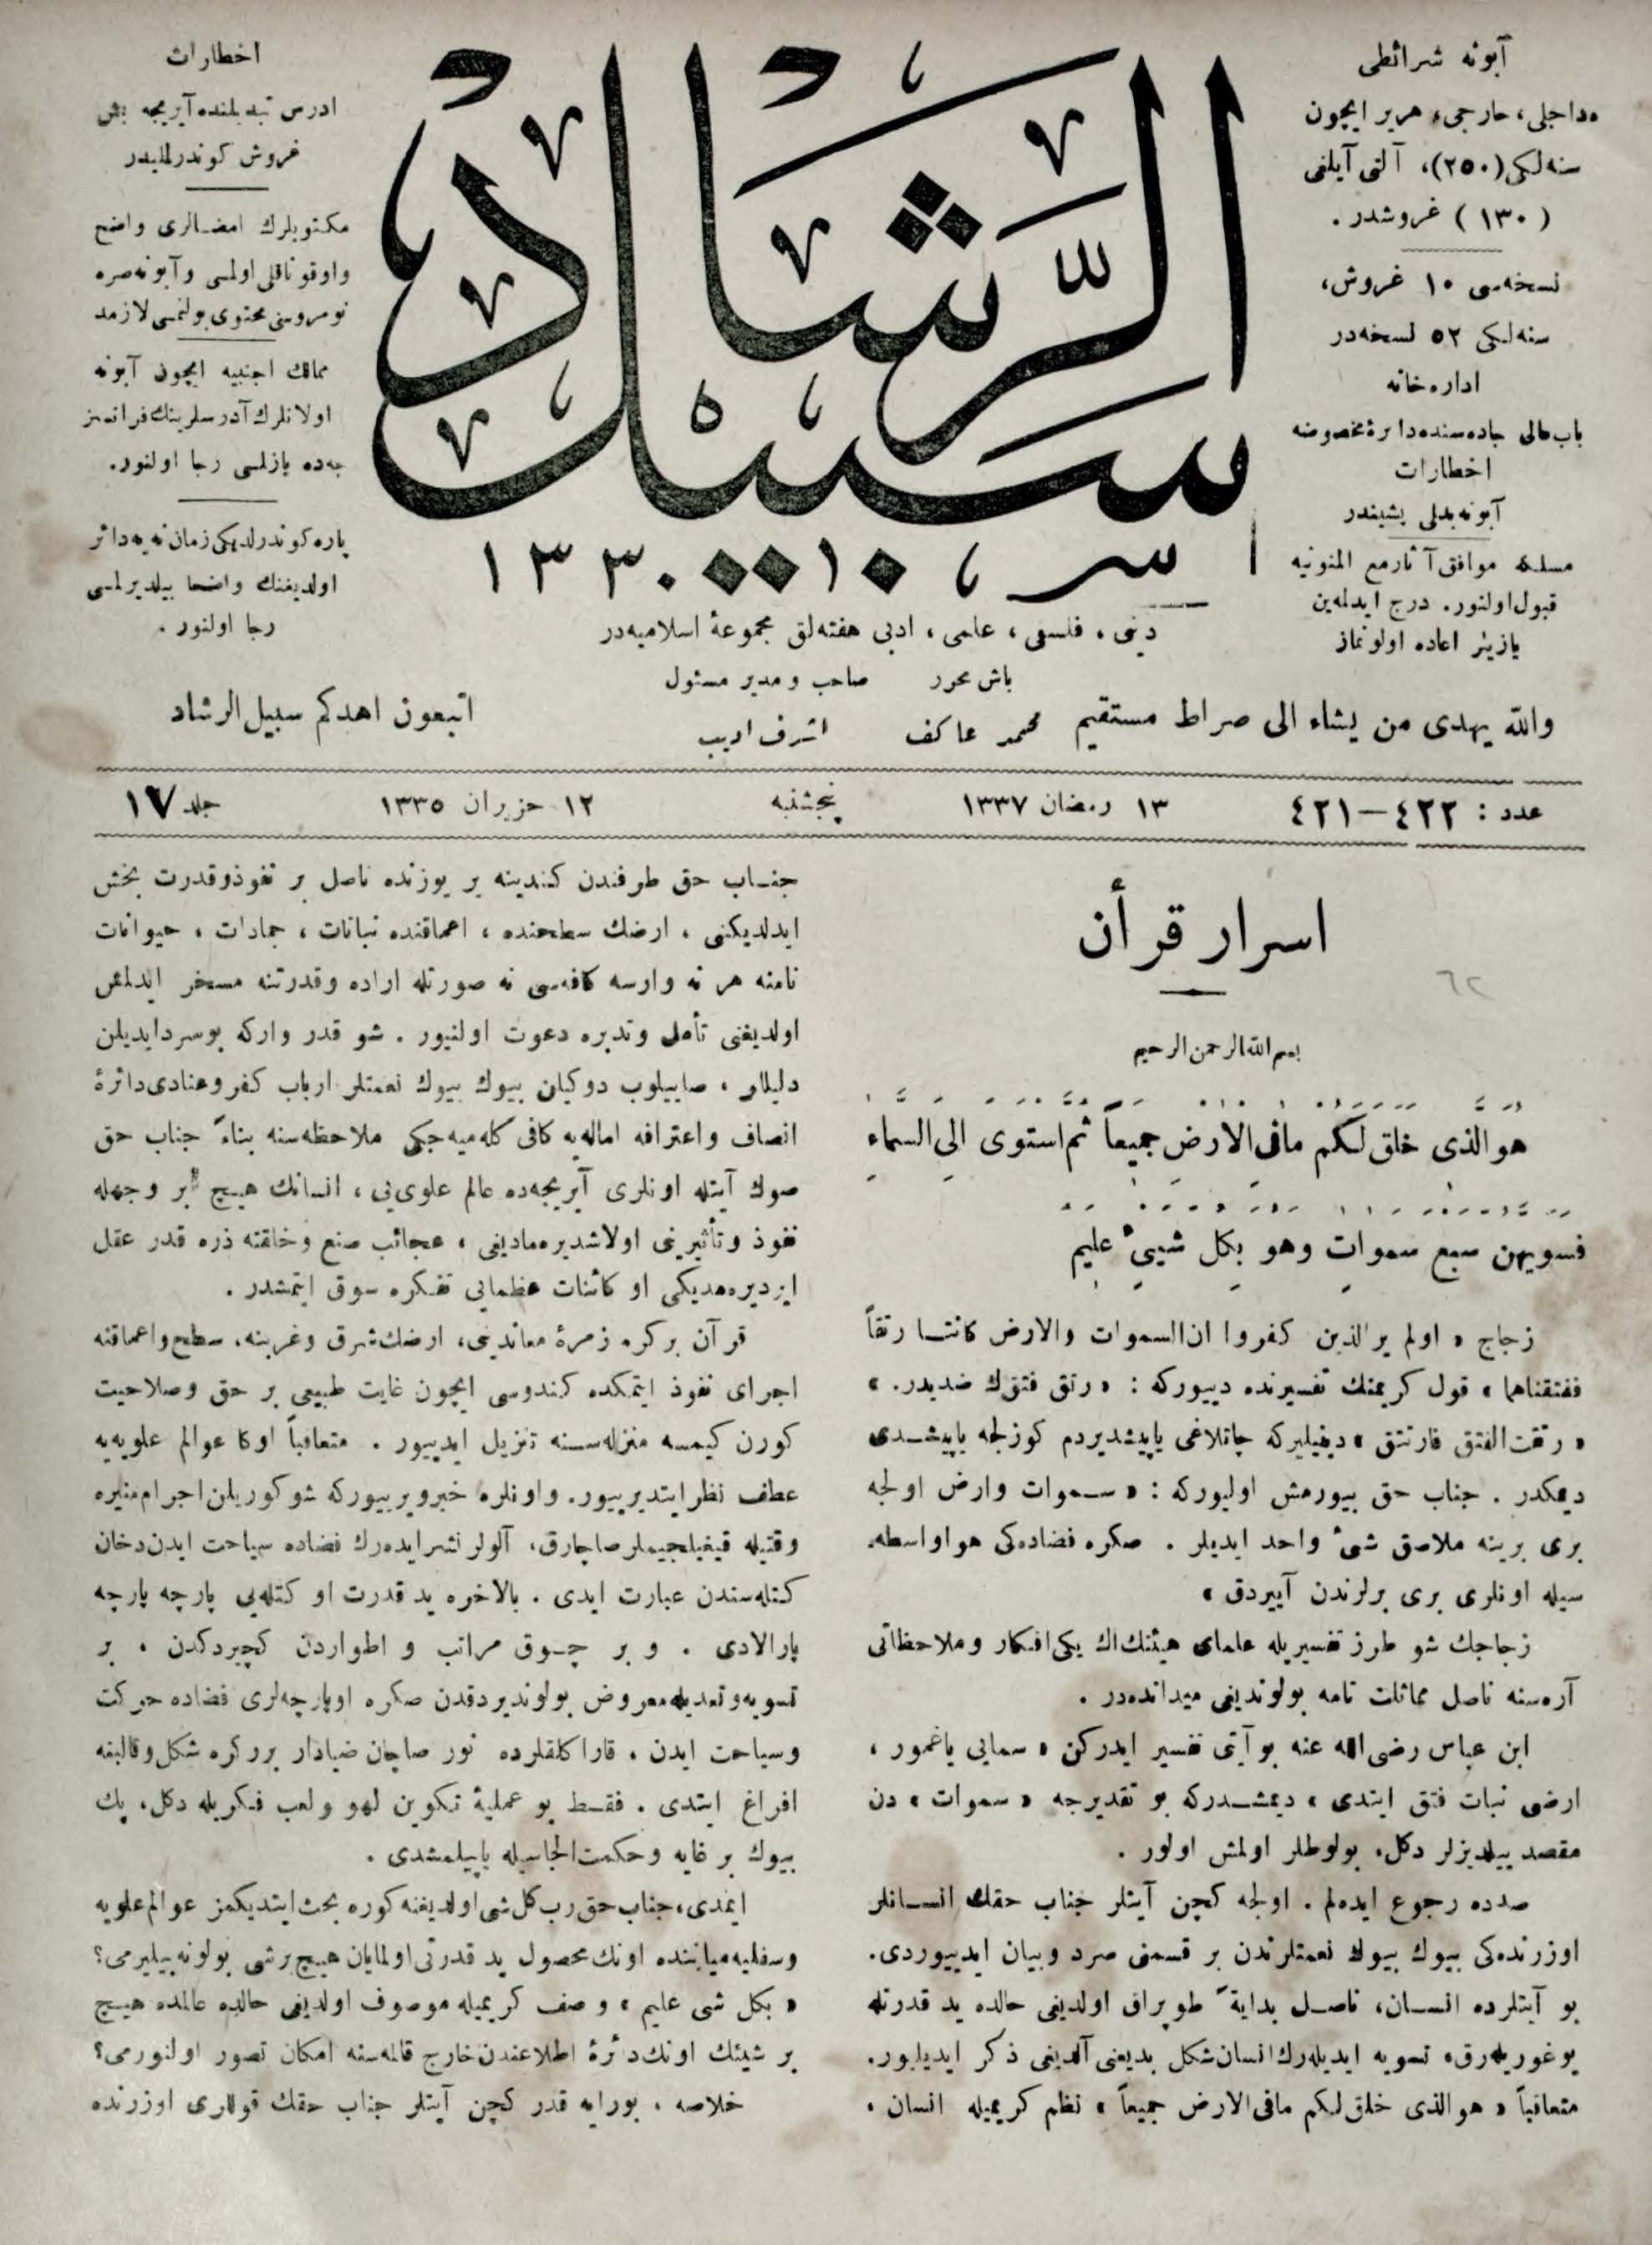 آبونه شرائطی
داخلی، خارجی، هر یر ایچون
سنه‌لکی (٢٥٠)، آلتی آیلغی
( ١٣٠ ) غروشدر .
نسخه‌سی ١٠ غروش،
سنه‌لکی ٥٢ نسخه‌در
اداره‌خانه
باب عالی جاده‌سنده دائرهٔ مخصوصه
اخطارات
آبونه بدلی پشیندر
مسلكه موافق آثار مع الممنونیه
قبول اولنور. درج ایدلمه‌ین
یازیلر اعاده اولونماز
سبیل الرشاد
١٣٣٠
دینی ، فلسفی ، علمی ، ادبی هفته‌لق مجموعهٔ اسلامیه‌در
باش محرر
صاحب و مدیر مسئول
محمد عاکف
اشرف ادیب
والله یهدی من یشاء الی صراط مستقیم
اتبعون اهدکم سبیل الرشاد
اخطارات
ادرس تبدیلنده آیریجه بش
غروش کوندرلملیدر
مکتوبلرك امضالری واضح
واوقوناقلی اولمسی وآبونه صره
نومروسنی محتوی بولنمسی لازمدر
ممالك اجنبیه ایچون آبونه
اولانلرك آدرسلرینك فرانسز
جه‌ده یازلمسی رجا اولنور.
پاره کوندرلدیکی زمان نه‌یه دائر
اولدیغنك واضحا بیلدیرلمسی
رجا اولنور .
عدد : ٤٢٢—٤٢١
١٣ رمضان ١٣٣٧
پنجشنبه
١٢ حزیران ١٣٣٥
جلد ١٧
اسرار قرآن
٦٢
بسم الله الرحمن الرحیم
هو الذی خلق لکم مافی الارض جمیعاً ثم استوی الی السماء
فسویهن سبع سموات وهو بکل شییٔ علیم
زجاج « اولم یر الذین کفروا ان السموات والارض کانتا رتقاً
ففتقناهما » قول کریمنك تفسیرنده دییورکه : « رتق فتقك ضدیدر. »
« رتقت الفتق فارتتق » دینیلیرکه چاتلاغی یاپیشدیردم کوزلجه یاپیشدی
دیمکدر . جناب حق بیورمش اولیورکه : « سموات وارض اولجه
بری برینه ملاصق شیٔ واحد ایدیلر . صکره فضاده‌کی هوا واسطه
سیله اونلری بری برلرندن آییردق »
زجاجك شو طرز تفسیریله علمای هیئتك اك یکی افکار وملاحظاتی
آره‌سنه ناصل مماثلت تامه بولوندیغی میدانده‌در .
ابن عباس رضی الله عنه بو آیتی تفسیر ایدرکن « سمایی یاغمور ،
ارضی نبات فتق ایتدی » دیمشدرکه بو تقدیرجه « سموات » دن
مقصد ییلدیزلر دکل، بولوطلر اولمش اولور .
صدده رجوع ایده‌لم . اولجه کچن آیتلر جناب حقك انسانلر
اوزرنده‌کی بیوك بیوك نعمتلرندن بر قسمنی سرد وبیان ایدییوردی.
بو آیتلرده انسان، ناصل بدایةً طوپراق اولدیغی حالده ید قدرتله
یوغوریله‌رق، تسویه ایدیله‌رك انسان شکل بدیعنی آلدیغی ذکر ایدیلیور.
متعاقباً « هو الذی خلق لکم مافی الارض جمیعاً » نظم کریمیله انسان ،
جناب حق طرفندن کندینه یر یوزنده ناصل بر نفوذ وقدرت بخش
ایدلدیکنی ، ارضك سطحنده ، اعماقنده نباتات ، جمادات ، حیوانات
نامنه هر نه وارسه کافه‌سی نه صورتله اراده وقدرتنه مسخر ایدلمش
اولدیغنی تأمل وتدبره دعوت اولنیور . شو قدر وارکه بو سرد ایدیلن
دلیللر ، صاییلوب دوکیلن بیوك بیوك نعمتلر ارباب کفر وعنادی دائرهٔ
انصاف واعترافه اماله‌یه کافی کله‌میه‌جکی ملاحظه‌سنه بناءً جناب حق
صوك آیتله اونلری آیریجه‌ده عالم علوی‌نی ، انسانك هیچ بر وجهله
نفوذ وتأثیرینی اولاشدیره‌مادیغی ، عجائب صنع وخلقته ذره قدر عقل
ایردیره‌مدیکی او کائنات عظمایی تفکره سوق ایتمشدر .
قرآن بر کره زمرهٔ معاندینی، ارضك شرق وغربنه، سطح واعماقنه
اجرای نفوذ ایتمکده کندوسی ایچون غایت طبیعی بر حق وصلاحیت
کورن کیمسه منزله‌سنه تنزیل ایدییور . متعاقباً اوکا عوالم علویه‌یه
عطف نظر ایتدیرییور. واونلره خبر ویرییورکه شو کوریلن اجرام منیره
وقتیله قیغیلجیملر صاچارق، آلولر نشر ایده‌رك فضاده سیاحت ایدن دخان
کتله‌سندن عبارت ایدی . بالاخره ید قدرت او کتله‌یی پارچه پارچه
پارالادی . و بر چوق مراتب و اطواردن کچیردکدن ، بر
تسویه وتعدیله معروض بولوندیردقدن صکره او پارچه‌لری فضاده حرکت
وسیاحت ایدن ، قاراکلقلرده نور صاچان ضیادار بررکره شکل وقالبنه
افراغ ایتدی . فقط بو عملیهٔ تکوین لهو ولعب فکریله دکل، پك
بیوك بر غایه وحکمت الجاسیله یاپیلمشدی .
ایمدی، جناب حق رب کل شی اولدیغنه کوره بحث ایتدیکمز عوالم علویه
وسفلیه میاننده اونك محصول ید قدرتی اولمایان هیچ بر شی بولونه‌بیلیرمی؟
« بکل شی علیم » وصف کریمیله موصوف اولدیغی حالده عالمده هیچ
بر شیئك اونك دائرهٔ اطلاعندن خارج قالمه‌سنه امکان تصور اولنورمی؟
خلاصه ، بورایه قدر کچن آیتلر جناب حقك قوللری اوزرنده